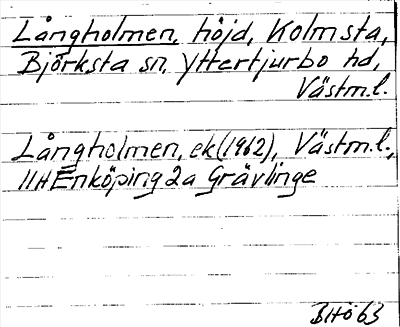 Långholmen, höjd, Kolmsta,
Björksta sn, Yttertjurbo hd,
Västm.l.
Långholmen, ek(1962), Västm.l.,
11H Enköping 2a Grävlinge
BHö 63